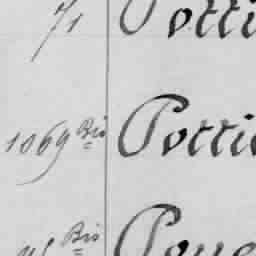 71 Potti
1069 Bis Pottie
Bis Poue